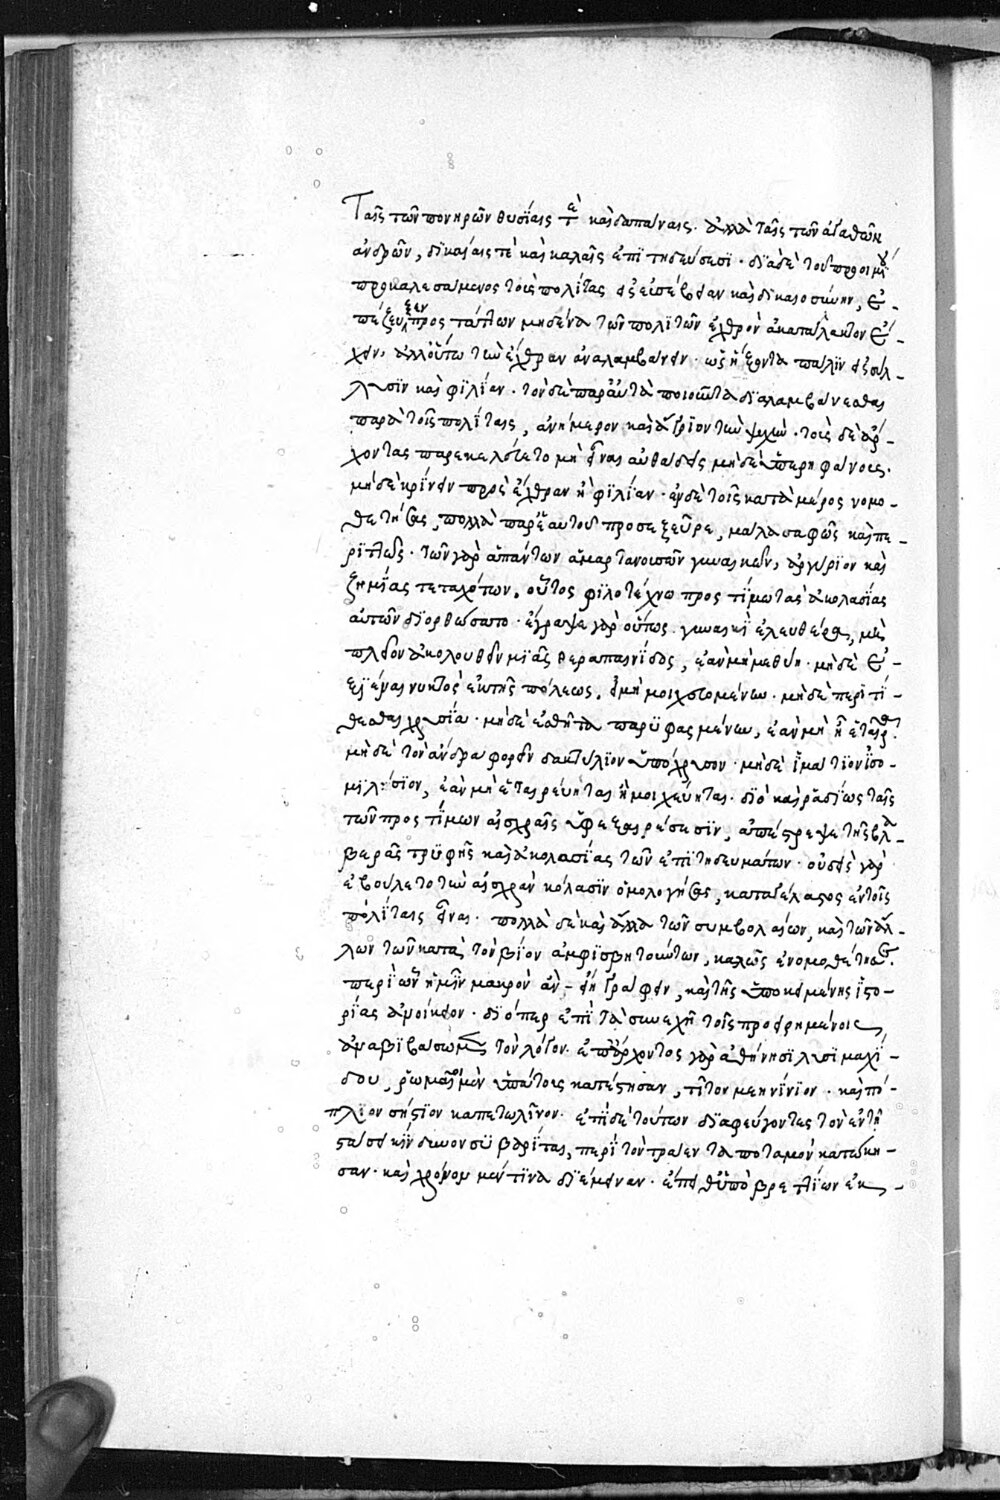 Ταῖς τῶν πονηρῶν θυσίαις τὲ καὶ δαπάναις. ἀλλὰ ταῖς τῶν ἀγαθῶν
ἀνδρῶν, δικαίαις τὲ καὶ καλαῖς ἐπιτηδεύσεσι · διὰ δὲ τοῦ προοιμίου
προκαλεσάμενος τοὺς πολίτας εἰς εὐσέβειαν καὶ δικαιοσύνην, ἐ-
πέζευξεν πρὸς τούτων μηδένα τῶν πολιτῶν ἐχθρὸν ἀκατάλακτον ἔ-
χειν, ἀλλ' οὕτω τὴν ἔχθραν ἀναλαμβάνειν · ὡς ἥξοντα πάλιν εἰς σύλ-
λυσιν καὶ φιλίαν · τὸν δὲ παρὰ ταῦτα ποιοῦντα διαλαμβάνεσθαι
παρὰ τοῖς πολίταις, ἀνήμερον καὶ ἄγριον τὴν ψυχήν · τοὺς δὲ ἄρ-
χοντας παρεκελεύετο μὴ εἶναι αὐθάδεις μηδὲ ὑπερηφάνους.
μηδὲ κρίνειν πρὸς ἔχθραν ἢ φιλίαν · ἐν δὲ τοῖς κατὰ μέρος νομο-
θετήσας, πολλὰ παρ' ἑαυτοῦ προσεξεῦρε, μάλα σαφῶς καὶ πε-
ριττῶς · τῶν γὰρ ἁπάντων ἁμαρτανουσῶν γυναικῶν, ἀργύριον καὶ
ζημίας τεταχότων, οὗτος φιλοτέχνω προστίμω τὰς ἀκολασίας
αὐτῶν διορθώσατο · ἔγραψε γὰρ οὕτως γυναικὶ ἐλευθέρα, μὲ
πλεῖον ἀκολουθεῖν μιᾶς θεραπαινίδος, ἐὰν μὴ μεθύη · μηδὲ ἐ-
ξιέναι νυκτὸς ἐκ τῆς πόλεως, εἰ μὴ μοιχευομένην · μηδὲ περιτί-
θεσθαι χρυσία · μηδὲ ἐσθῆτα παρυφασμένην, ἐὰν μὴ ἦ ἑταίρα.
μηδὲ τὸν ἄνδρα φορεῖν δακτύλιον ὑπόχρυσον · μηδὲ ἱμάτιον ἰσο-
μιλήσιον, ἐὰν μὴ ἑταιρεύηται ἢ μοιχεύηται. διὸ καὶ ῥαδίως ταῖς
τῶν προστίμων αἰσχραῖς ὑφεξαιρέσεσιν, ἀπέστρεψε τῆς βλα-
βερᾶς τρυφῆς καὶ ἀκολασίας τῶν ἐπιτηδευμάτων · οὐδεὶς γὰρ
ἐβούλετο τὴν αἰσχρὰν κόλασιν ὁμολογήσας, καταγέλαστος ἐν τοῖς
πολίταις εἶναι · πολλὰ δὲ καὶ ἄλλα τῶν συμβολαίων, καὶ τῶν ἄλ-
λων τῶν κατὰ τὸν βίον ἀμφισβητουμένων, καλῶς ἐνομοθέτησε.
περὶ ὧν ἡμῖν μακρὸν ἂν - εἴη γράφειν, καὶ τῆς ὑποκειμένης ἱστο-
ρίας ἀνοίκειον · διόπερ ἐπὶ τὰ συνεχῆ τοῖς προειρημένοις
ἀναβιβάσωμεν τὸν λόγον. ἐπ' ἄρχοντος γὰρ ἀθήνησι λυσιμαχί-
δου, ῥωμαῖοι μὲν ὑπάτους κατέστησαν, τίτον μενήνιον · καὶ πό-
πλιον σήστιον καπετωλῖνον. ἐπὶ δὲ τούτων διαφεύγοντες τὸν ἐν τῆ
στάσει κίνδυνον συβαρίται, περὶ τὸν τράεντα ποταμὸν κατώκη-
σαν · καὶ χρόνον μέν τινα διέμειναν. ἔπειθ' ὑπὸ βρεττίων ἐκ-